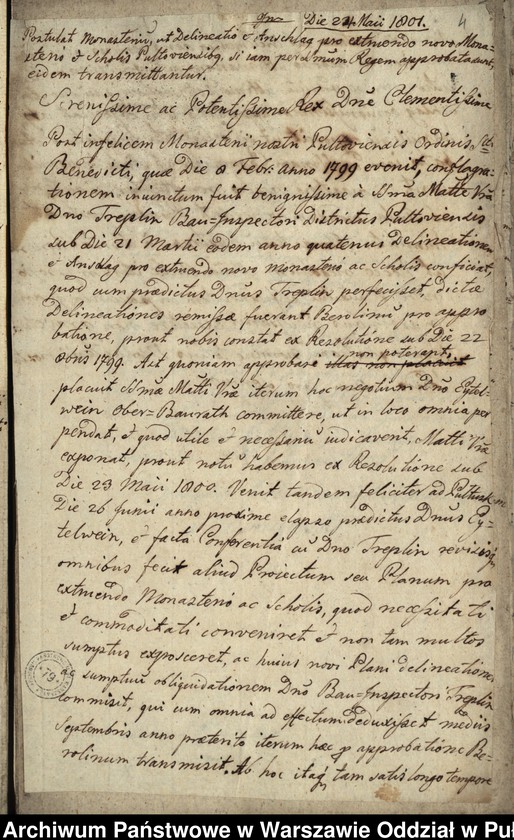 Die 24 Maii 1801.
4
Postulat Monasteriū, ut Delineatio & Anschlag pro extruendo novo Mona=
sterio & Scholis Pultoviensibq, si iam per almum Regem approbata sunt,
eidem transmittantur.
Serenissime ac Potentissime Rex Dn̄e Clementissime
Post infelicem Monasterii nostri Pultoviensis Ordinis Sti
Benedicti, quæ Die 8 Febr: anno 1799 evenit, conflagra=
tionem iniunctum fuit benignissime à Matte Vrā
Dno Treplin Bau=Inspectori Districtus Pultoviensis
sub Die 21 Martii eodem anno quatenus Delineationem
& Anschlag pro extruendo novo monasterio ac Scholis conficiat,
quod cum prædictus Dnus Treplin perfecisset, dictæ
Delineationes remissæ fuerant Berolinum pro appro
batione, prout nobis constat ex Resolutione sub Die 22
8bris 1799. Ast quoniam approbari illas non placuit
non poterant,
placuit Matti Vræ iterum hoc negotium Dno Eytel=
wein Ober=Baurath committere, ut in loco omnia per
pendat, & quod utile & necessariū iudicaverit, Matti Vræ
exponat, prout notū habemus ex Resolutione sub
Die 23 Maii 1800. Venit tandem feliciter ad Pultusk
Die 26 Junii anno proxime elapso prædictus Dnus Ey=
telwein, & facta Conferentia cū Dno Treplin revisisq
omnibus fecit aliud Proiectum seu Planum pro
extruendo Monasterio ac Scholis, quod necessitati
& commoditati conveniret & non tam multos
sumptus exposceret, ac huius novi Plani delineationem
ac sumptuū obliquidationem Dno Bau=Inspectori Treplin
commisit, qui cum omnia ad effectum deduxisset mediis
Septembris anno præterito iterum hæc p approbatione Be=
rolinum transmisit. Ab hoc itaq tam satis longo tempore
Archiwum Państwowe w Warszawie Oddział w Pu